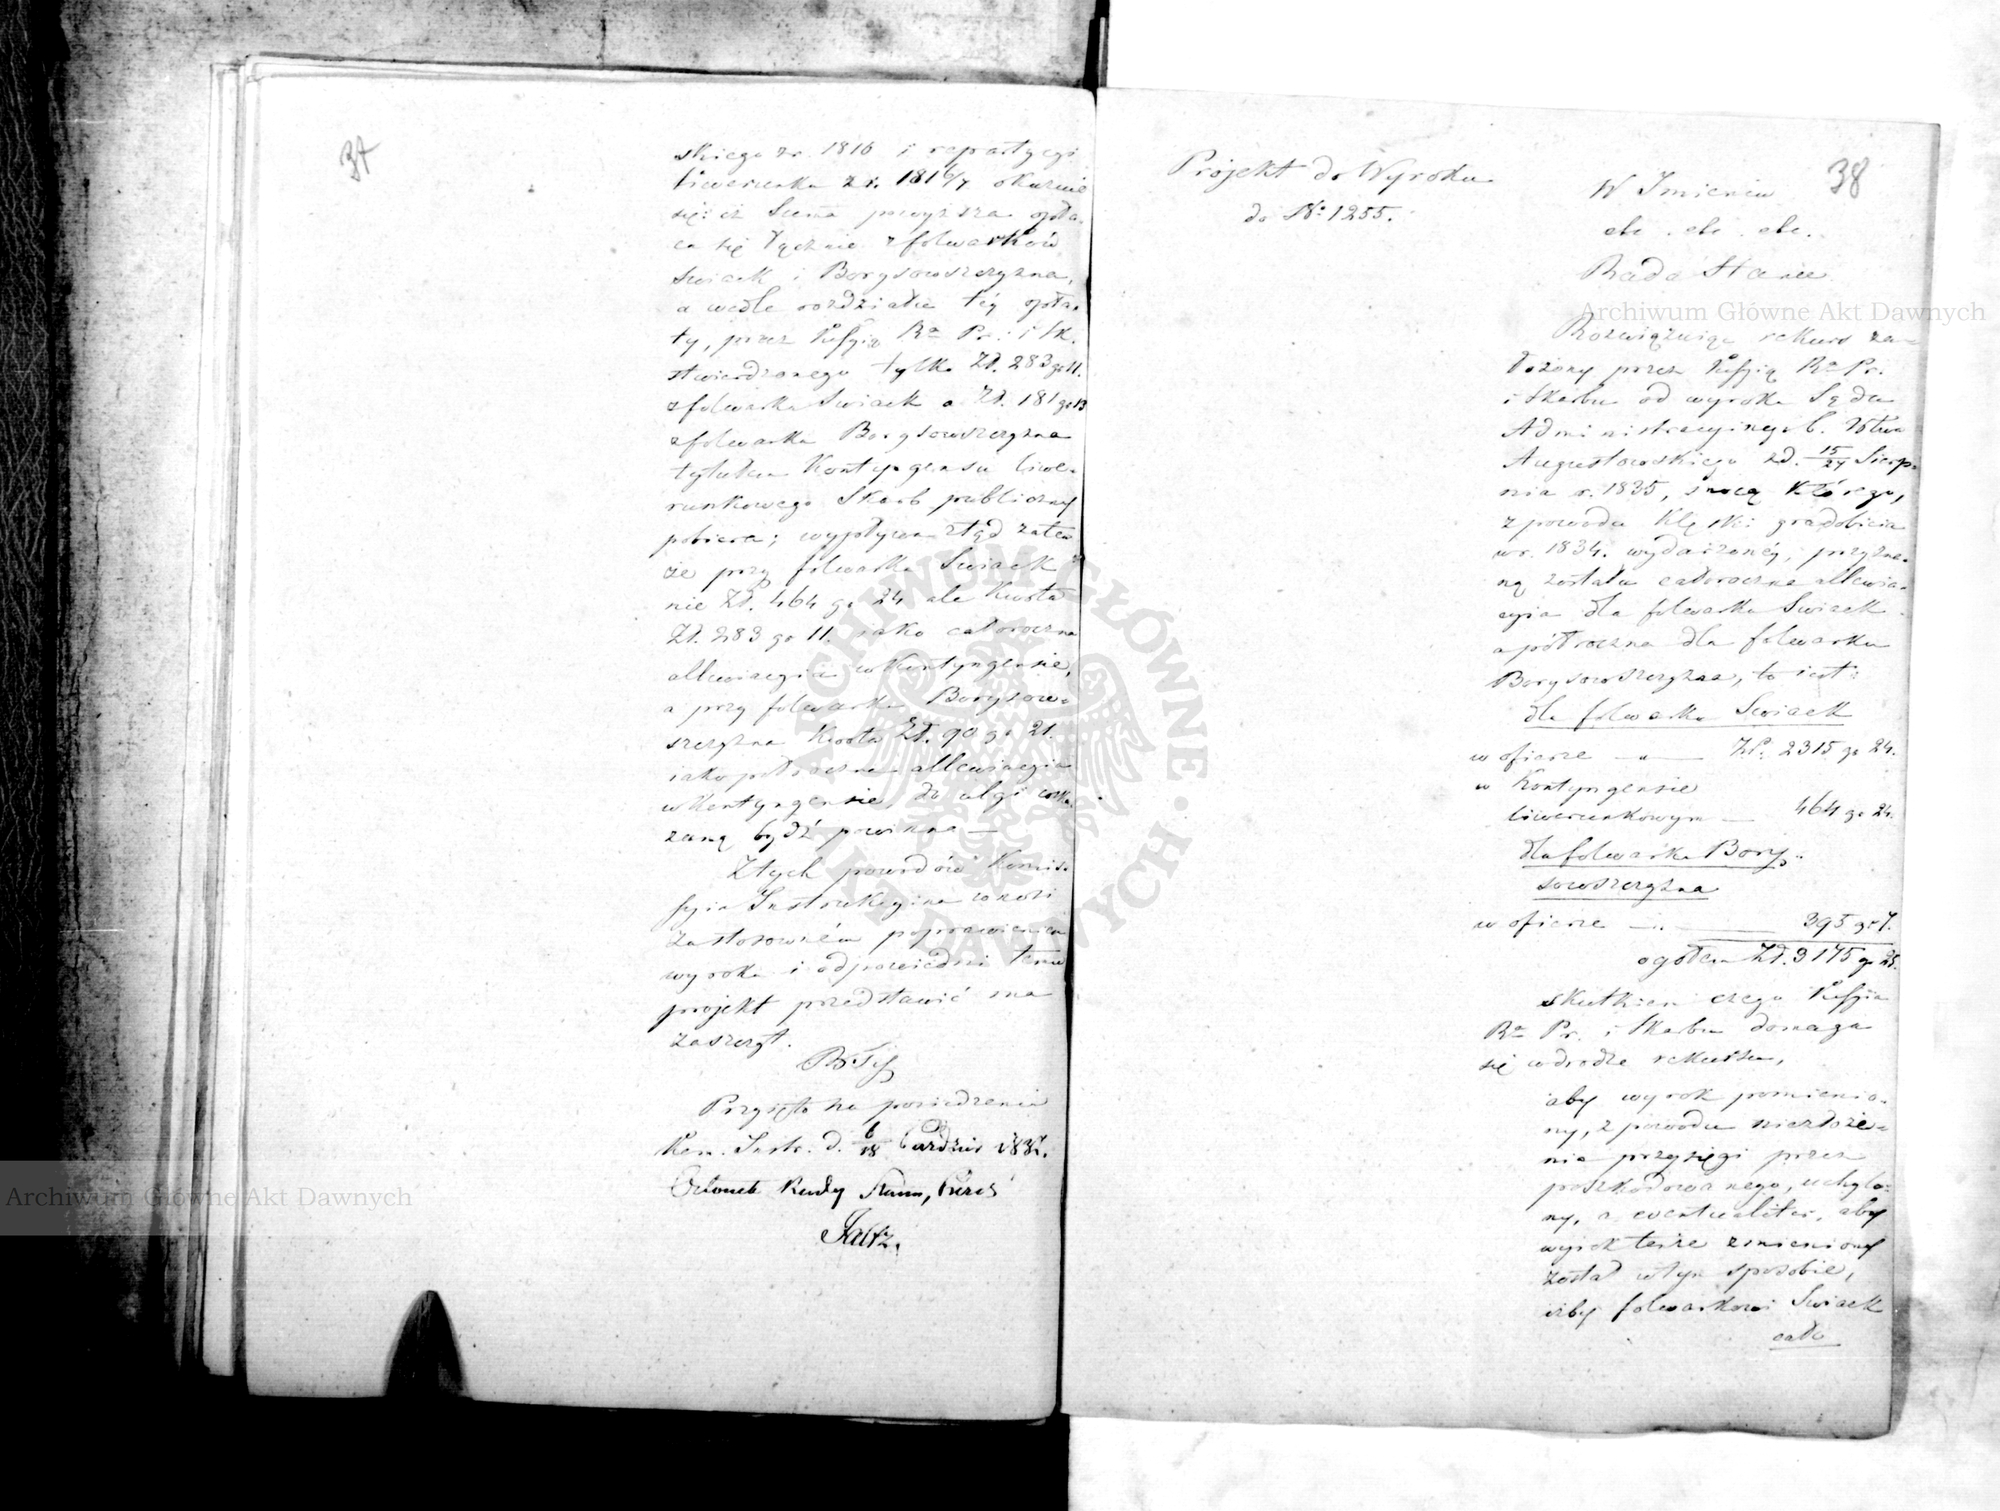 37
skiego z r. 1816 i repartycyi
liwerunku z r. 1816/7 okazuie
się: iż Suma powyższa opła-
ca się łącznie z folwarków
Swiack i Borysowszczyzna,
a wedle rozdziału téy opła-
ty, przez Kssyią Rą Pr: i Sk.
stwierdzonego tylko Zł. 283 gr 11.
z folwarku Swiack a Zł. 181 gr 13
z folwarku Borysowszczyzna
tytułem Kontyngensu liwe-
runkowego Skarb publiczny
pobiera; wypływa ztąd zatem
że przy folwarku Swiack
nie Zł. 464 gr 24 ale Kwota
Zł. 283 gr 11. iako całoroczna
allewiacyia w Kontyngensie,
a przy folwarku Borysow-
szczyzna Kwota Zł. 90 gr 21.
iako półroczna allewiacyia
w Kontyngensie, do ulgi wska-
zaną bydź powinna —
Z tych powodów Komis-
syia Instrukcyina wnosi
za stosowném poprawieniem
wyroku i odpowiedni temu
projekt przedstawić ma
zaszczyt.
Przyięto na posiedzeniu
Kom. Instr. d. 6/18 Paździer 1838.
Członek Rady Stanu, Prezes
38
Projekt do Wyroku
do No 1255.
W Imieniu
etc. etc. etc.
Rada Stanu
Rozwiązuiąc rekurs za-
łożony przez Kssyią Rą Pr.
i Skarbu od wyroku Sądu
Administracyinego b. Wdztwa
Augustowskiego z d. 15/27 Sierp-
nia r. 1835, mocą którego,
z powodu klęski gradobicia
w r. 1834. wydarzonéy, przyzna-
ną została całoroczna allewia-
cyia dla folwarku Swiack
a półroczna dla folwarku
Borysowszczyzna, to iest:
dla folwarku Swiack
w ofierze — „ — Zł. 2315 gr 24.
w Kontyngensie
liwerunkowym — 464 gr 24.
dla folwarku Bory-
sowszczyzna
w ofierze — „ — 395 gr 7.
ogółem Zł. 3175 gr 25.
skutkiem czego Kssyia
Rą Pr. i Skarbu domaga
się w drodze rekursu,
aby wyrok pomienio-
ny, z powodu niezłoże-
nia przysięgi przez
poszkodowanego, uchylo-
ny, a eventualiter, aby
wyrok tenże zmieniony
został w tym sposobie,
iżby folwarkowi Swiack
cało
Archiwum Główne Akt Dawnych
Archiwum Główne Akt Dawnych
ARCHIWUM GŁÓWNE AKT DAWNYCH